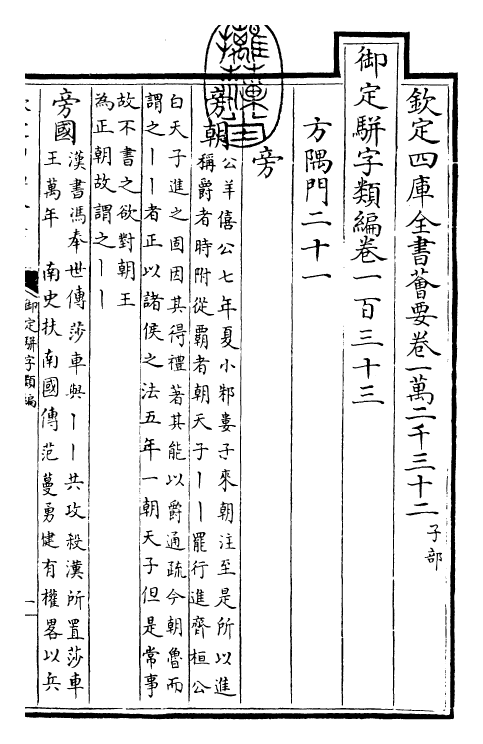 欽定四庫全書薈要卷一萬二千三十二 子部
御定駢字類編卷一百三十三
方隅門二十一
旁
旁朝 公羊僖公七年夏小邾婁子來朝注至是所以進
稱爵者時附從霸者朝天子丨丨罷行進齊桓公
白天子進之固因其得禮著其能以爵通疏今朝魯而
謂之丨丨者正以諸侯之法五年一朝天子但是常事
故不書之欲對朝王
為正朝故謂之丨丨
旁國 漢書馮奉世傳莎車與丨丨共攻殺漢所置莎車
王萬年 南史扶南國傳范蔓勇健有權畧以兵
御定駢字類編
一